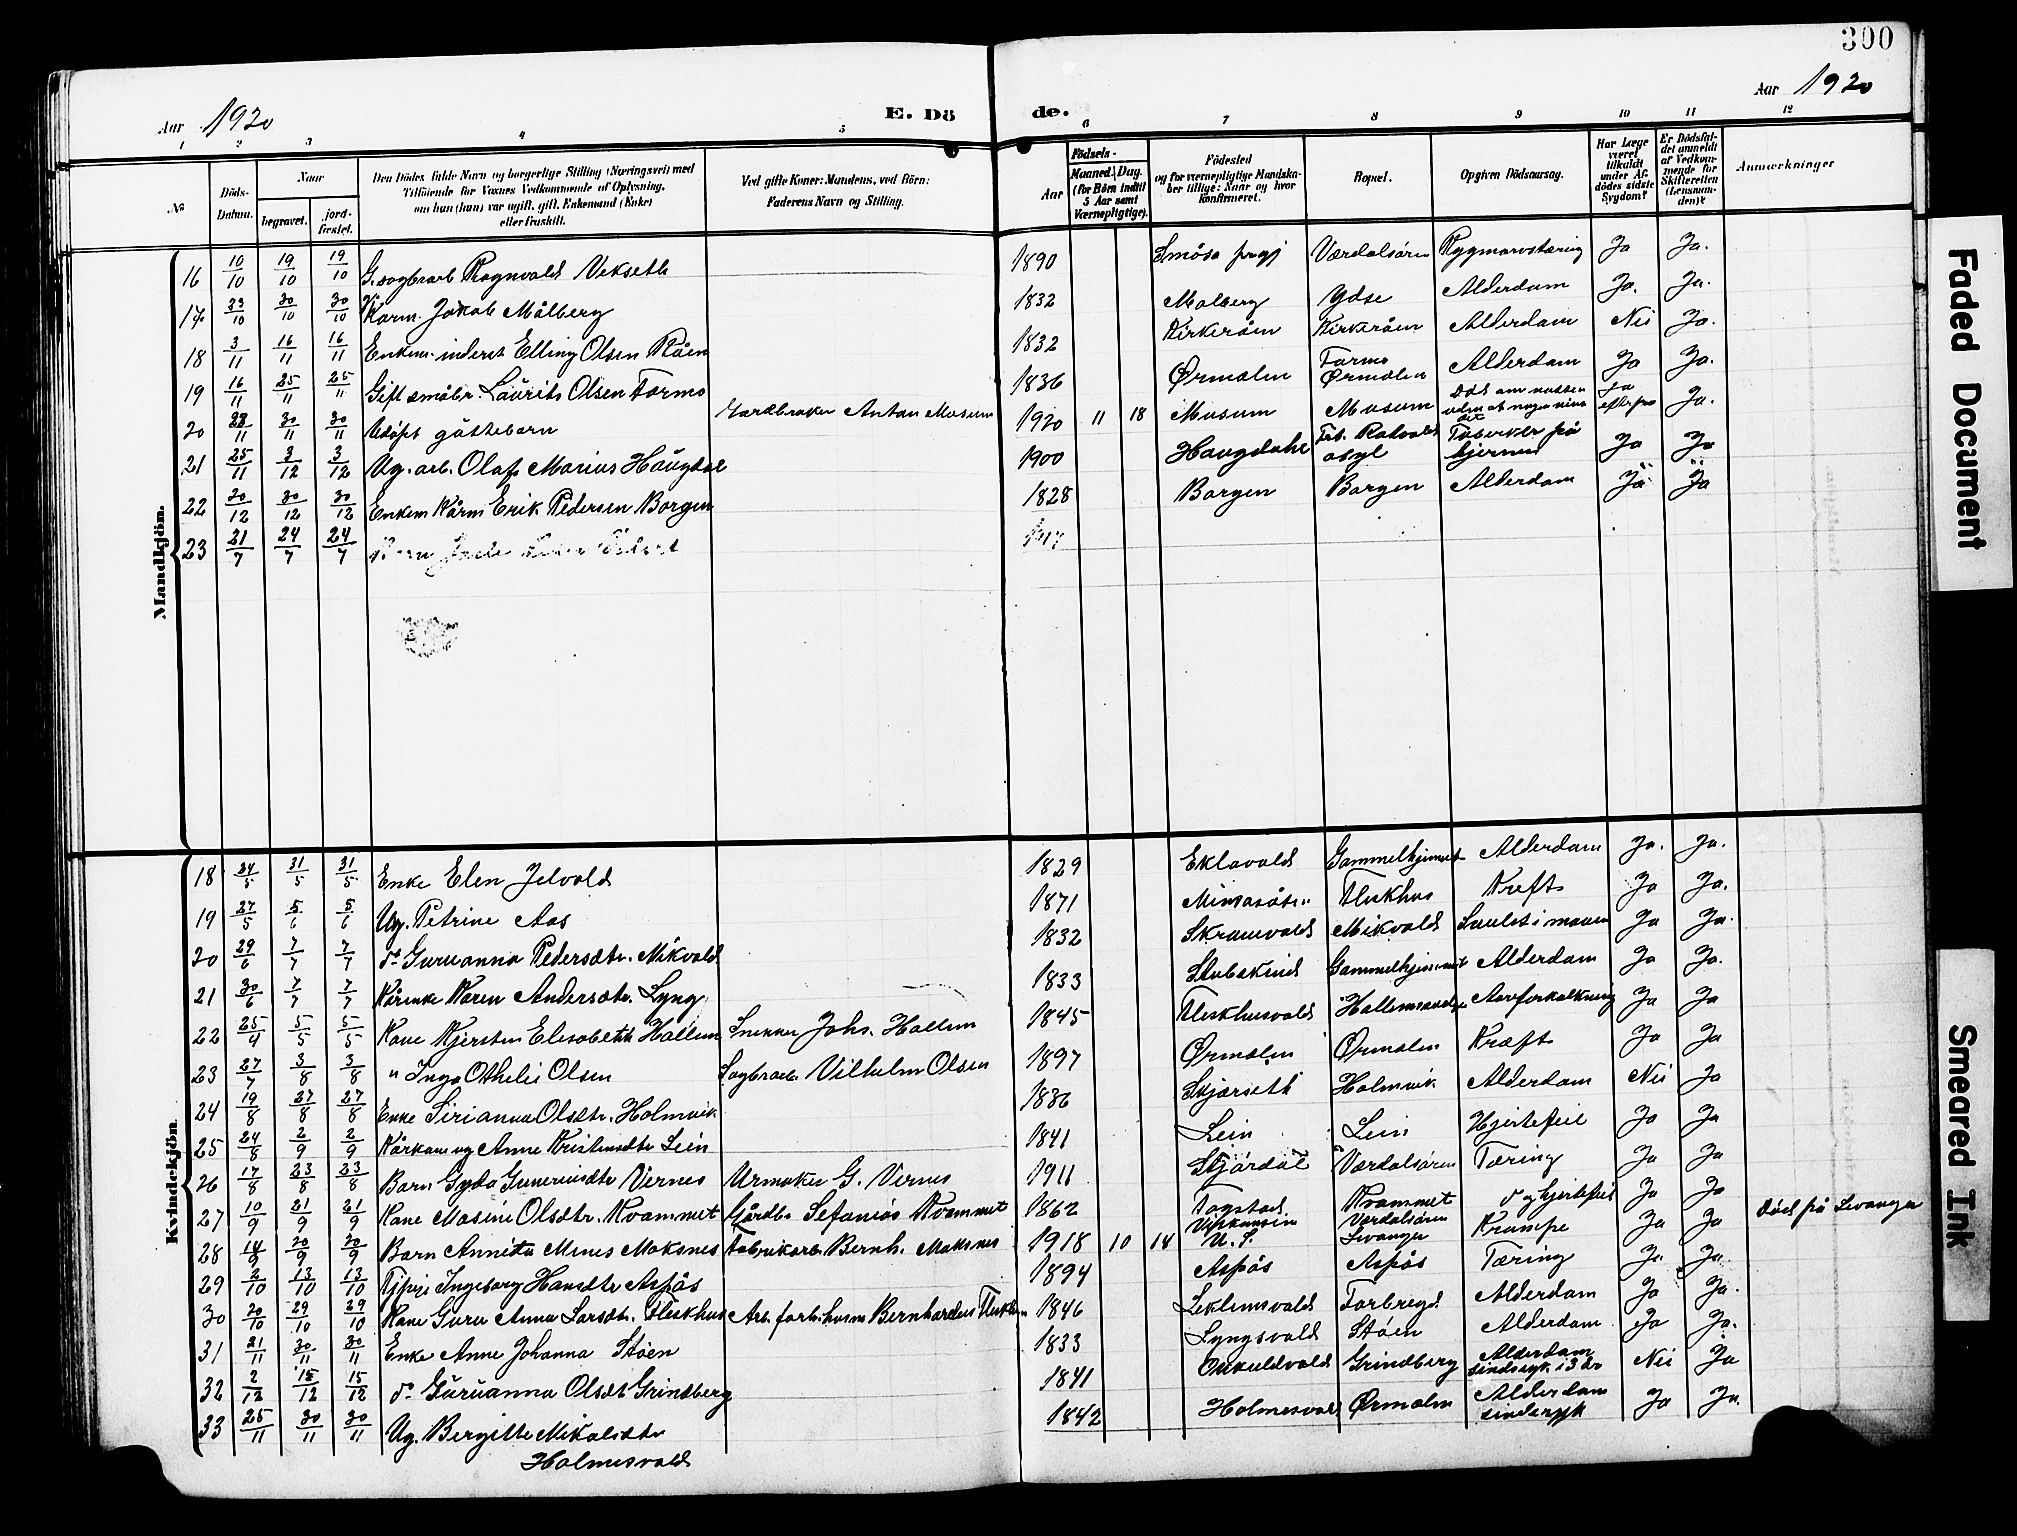 300
Aar 1920 E. Dö de. Aar 1920
1 2 3 4 5 6 7 8 9 10 11 12
№ Döds-Datum. Naar begravet. jordfæstet. Den Dödes fulde Navn og borgerlige Stilling (Næringsvei) med Tilföiende for Voxnes Vedkommende af Oplysning, om han (hun) var ugift, gift, Enkemand (Enke) eller fraskilt. Ved gifte Koner: Mandens, ved Börn: Faderens Navn og Stilling. Aar Födsels- Maaned. Dag. (for Börn indtil 5 Aar samt Værnepligtige). Födested og for værnepligtige Mandskaber tillige: Naar og hvor konfirmeret. Bopæl. Opgiven Dödsaarsag. Har Læge været tilkaldt under Afdödes sidste Sygdom? Er Dödsfaldet anmeldt af Vedkommende for Skifteretten (Lensmanden)? Anmærkninger
Mandkjön.
16 10/10 19/10 19/10 G. sagbrarb Ragnvald Vekseth 1890 Smöla prgj Værdalsören Rygmarvstæring Ja Ja.
17 23/10 30/10 30/10 Kårm. Jakob Målberg 1832 Molberg Ydse Alderdom Ja. Ja.
18 3/11 16/11 16/11 Enkem. inderst Elling Olsen Röen 1832 Kirkeröen Kirkeröen Alderdom Nei Ja.
19 16/11 25/11 25/11 Gift småbr. Laurits Olsen Formo 1836 Ørmelen Formo Ørmelen Alderdom Ja Ja.
20 28/11 30/11 30/11 Udöpt guttebarn Gardbruker Anton Musum 1920 11 18 Musum Musum Död om natten uden at nogen vidste det Ja efterpaa Ja.
21 25/11 3/12 3/12 Ug. arb. Olaf Marius Haugdal 1900 Haugdahl asyl Tuberkler på hjernen Ja Ja
22 20/12 30/12 30/12 Enkem Kårm Erik Pedersen Borgen 1828 Borgen Borgen Alderdom Ja Ja
23 21/7 24/7 24/7
Kvindekjön.
18 24/5 31/5 31/5 Enke Elen Jelvold 1829 Eklovald Gammelhjemmet Alderdom Ja. Ja.
19 27/5 5/6 5/6 Ug. Petrine Aas 1871 Fleskhus Kreft Ja Ja.
20 29/6 7/7 7/7 do Guruanna Pedersdtr. Mikvold 1832 Skramvald Mikvold Saulet i maven Ja Ja.
21 30/6 7/7 7/7 Kårenke Karen Andersdtr. Lyng 1833 Stubskind Gammelhjemmet Alderdom Ja Ja.
22 25/4 5/5 5/5 Kone Kjersten Elisabeth Hallem Snekker Johs. Hallem 1845 Fleskhusvald Hallemsvald Aareforkalkning Ja Ja
23 27/7 3/8 3/8 " Inga Othelie Olsen Sagbrarb. Vilhelm Olsen 1897 Ørmelen Ørmelen Kræft Ja Ja
24 19/8 27/8 27/8 Enke Sirianna Olsdtr. Holmvik 1836 Skjærseth Holmvik Alderdom Nei Ja
25 24/8 2/9 2/9 Kårkone ug Anne Kristensdtr Lein 1841 Lein Lein Hjertefeil Ja Ja
26 17/8 23/8 23/8 Barn Gyda Gunnerusdtr Vernes Urmaker G. Vernes 1911 Stjördal Værdalsören Tæring Ja Ja
27 10/9 21/9 21/9 Kone Masine Olsdtr. Kvammet Gårdbr Sefanias Kvammet 1862 Togstad Kvammet do og hjertefeil Ja Ja
28 14/9 20/9 20/9 Barn Annida Minis Moksnes Fabrikarb. Bernh. Moksnes 1918 10 14 Virkonsin U. S. Værdalsören Levanger Krampe Ja Ja Död på Levanger
29 2/10 13/10 13/10 Tjpi Ingeborg Hansdtr Aspås 1894 Aspås Aspås Tæring Ja. Ja
30 20/10 29/10 29/10 Kone Guru Anna Larsdtr. Fleskhus Arb. forh. husm Bernhardus Fleskhus 1846 Leklemsvald Forbregd. Alderdom Ja Ja.
31 21/11 30/11 30/11 Enke Anne Johanna Stöen 1833 Lyngsvald Stöen Alderdom Ja Ja.
32 2/12 15/12 15/12 do Guruanna Olsdt Grindberg 1841 Grindberg Alderdom sindssyk i 3 År Nei Ja
33 25/11 30/11 30/11 Ug. Bergitte Mikalsdtr Holmesvald 1842 Holmesvald Ørmelen Alderdom sindssyk Ja Ja.
Faded Document
Smeared Ink